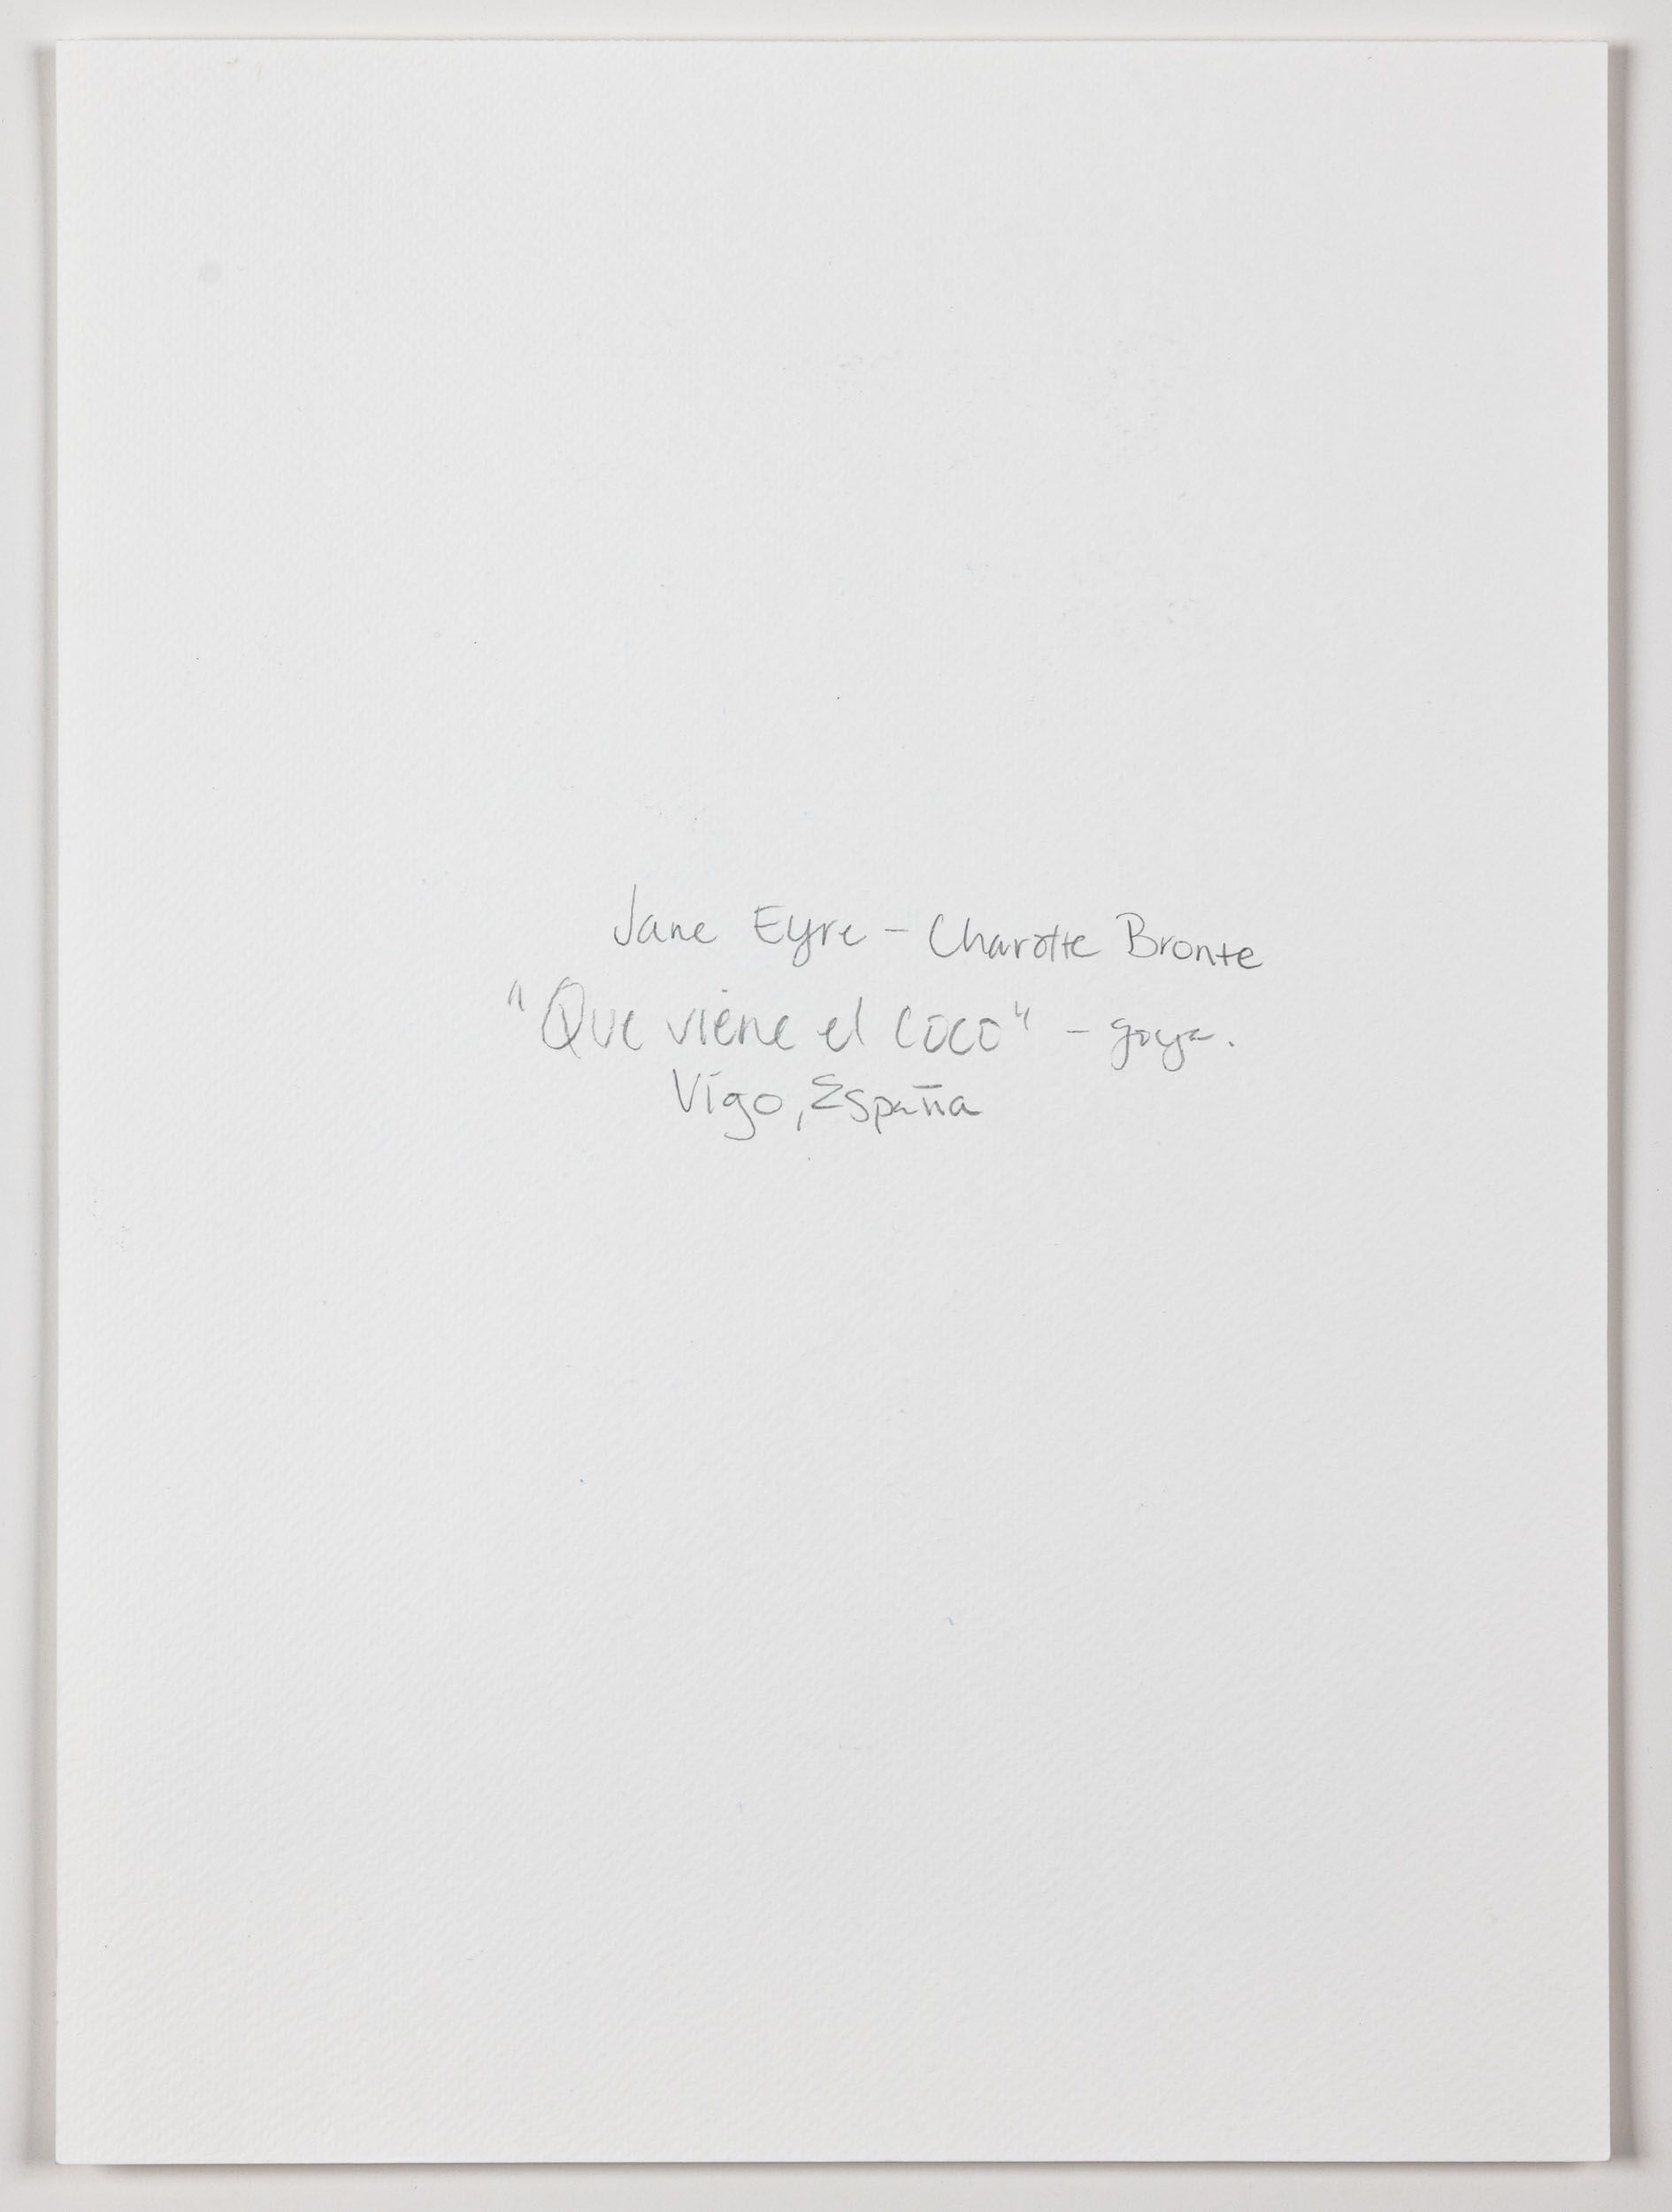 Jane Eyre - Charotte Bronte
"Que viene el coco" - goya.
Vigo, España